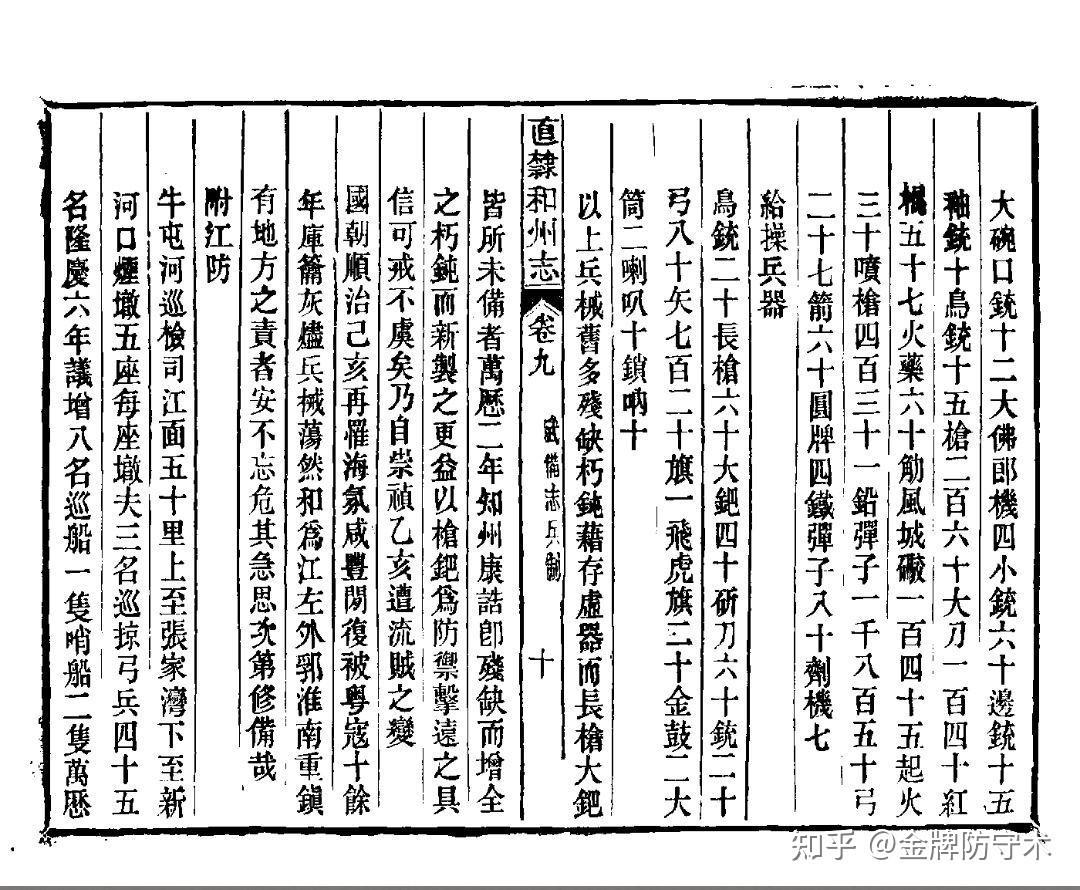 大碗口銃十二大佛郎機四小銃六十邊銃十五
釉銃十鳥銃十五槍二百六十大刀一百四十紅
五十七火藥六十觔風城礮一百四十五起火
三十噴槍四百三十一鉛彈子一千八百五十弓
二十七箭六十圓牌四鐵彈子八十劑機七
給操兵器
鳥銃二十長槍六十大鈀四十斫刀六十銃二十
弓八十矢七百二十旗一飛虎旗三十金鼓二大
筒二喇叭十鎖吶十
以上兵械舊多殘缺朽鈍藉存虛器而長槍大鈀
直隸和州志 卷九 武備志兵制 十
皆所未備者萬歷二年知州康誥卽殘缺而增全
之朽鈍而新製之更益以槍鈀爲防禦擊遠之具
信可戒不虞矣乃自崇禎乙亥遭流賊之變
國朝順治己亥再罹海氛咸豐閒復被粤寇十餘
年庫籥灰燼兵械蕩然和爲江左外郛淮南重鎭
有地方之責者安不忘危其急思次第修備哉
附江防
牛屯河巡檢司江面五十里上至張家灣下至新
河口煙墩五座每座墩夫三名巡掠弓兵四十五
名隆慶六年議增八名巡船一隻哨船二隻萬歷
知乎 @金牌防守术